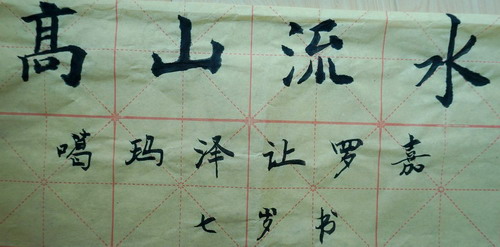 髙山流水
噶玛泽让罗嘉
七岁书